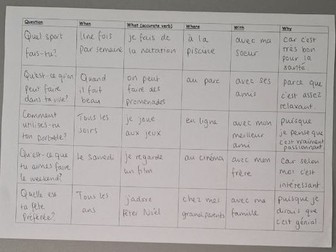 Question When What (accurate verb) Where With Why
Quel sport fais-tu?
Une fois par semaine
je fais de la natation
à la piscine
avec ma soeur
car c'est très bon pour la santé
Qu'est-ce qu'on peut faire dans ta ville?
Quand il fait beau
on peut faire des promenades
au parc
avec ses amis
parce que c'est assez relaxant
Comment utilises-tu ton portable?
Tous les soirs
je joue aux jeux
en ligne
avec mon meilleur ami
puisque je pense que c'est vraiment passionnant
Qu'est-ce que tu aimes faire le weekend?
Le Samedi
je regarde un film
au cinéma
avec mon frère
car selon moi c'est intéressant
Quelle est ta fête préférée?
Tous les ans
j'adore fêter Noël
chez mes grandparents
avec ma famille
puisque je dirais que c'est génial